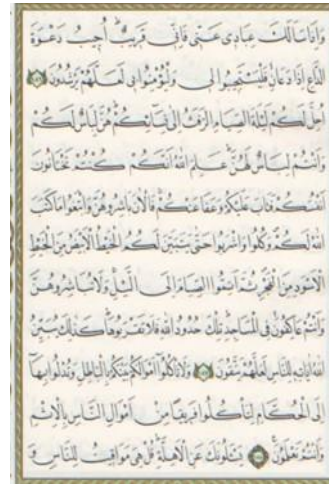 وَاِذَا سَاَلَكَ عِبَادٖى عَنّٖى فَاِنّٖى قَرٖيبٌ اُجٖيبُ دَعْوَةَ
الدَّاعِ اِذَا دَعَانِ فَلْيَسْتَجٖيبُوا لٖى وَلْيُؤْمِنُوا بٖى لَعَلَّهُمْ يَرْشُدُونَ
اُحِلَّ لَكُمْ لَيْلَةَ الصِّيَامِ الرَّفَثُ اِلٰى نِسَائِكُمْ هُنَّ لِبَاسٌ لَكُمْ
وَاَنْتُمْ لِبَاسٌ لَهُنَّ عَلِمَ اللّٰهُ اَنَّكُمْ كُنْتُمْ تَخْتَانُونَ
اَنْفُسَكُمْ فَتَابَ عَلَيْكُمْ وَعَفَا عَنْكُمْ فَالْاٰنَ بَاشِرُوهُنَّ وَابْتَغُوا مَا كَتَبَ
اللّٰهُ لَكُمْ وَكُلُوا وَاشْرَبُوا حَتّٰى يَتَبَيَّنَ لَكُمُ الْخَيْطُ الْاَبْيَضُ مِنَ الْخَيْطِ
الْاَسْوَدِ مِنَ الْفَجْرِ ثُمَّ اَتِمُّوا الصِّيَامَ اِلَى الَّيْلِ وَلَا تُبَاشِرُوهُنَّ
وَاَنْتُمْ عَاكِفُونَ فِى الْمَسَاجِدِ تِلْكَ حُدُودُ اللّٰهِ فَلَا تَقْرَبُوهَا كَذٰلِكَ يُبَيِّنُ
اللّٰهُ اٰيَاتِهٖ لِلنَّاسِ لَعَلَّهُمْ يَتَّقُونَ وَلَا تَاْكُلُوا اَمْوَالَكُمْ بَيْنَكُمْ بِالْبَاطِلِ وَتُدْلُوا بِهَا
اِلَى الْحُكَّامِ لِتَاْكُلُوا فَرٖيقًا مِنْ اَمْوَالِ النَّاسِ بِالْاِثْمِ
وَاَنْتُمْ تَعْلَمُونَ يَسْـَٔلُونَكَ عَنِ الْاَهِلَّةِ قُلْ هِىَ مَوَاقٖيتُ لِلنَّاسِ وَ